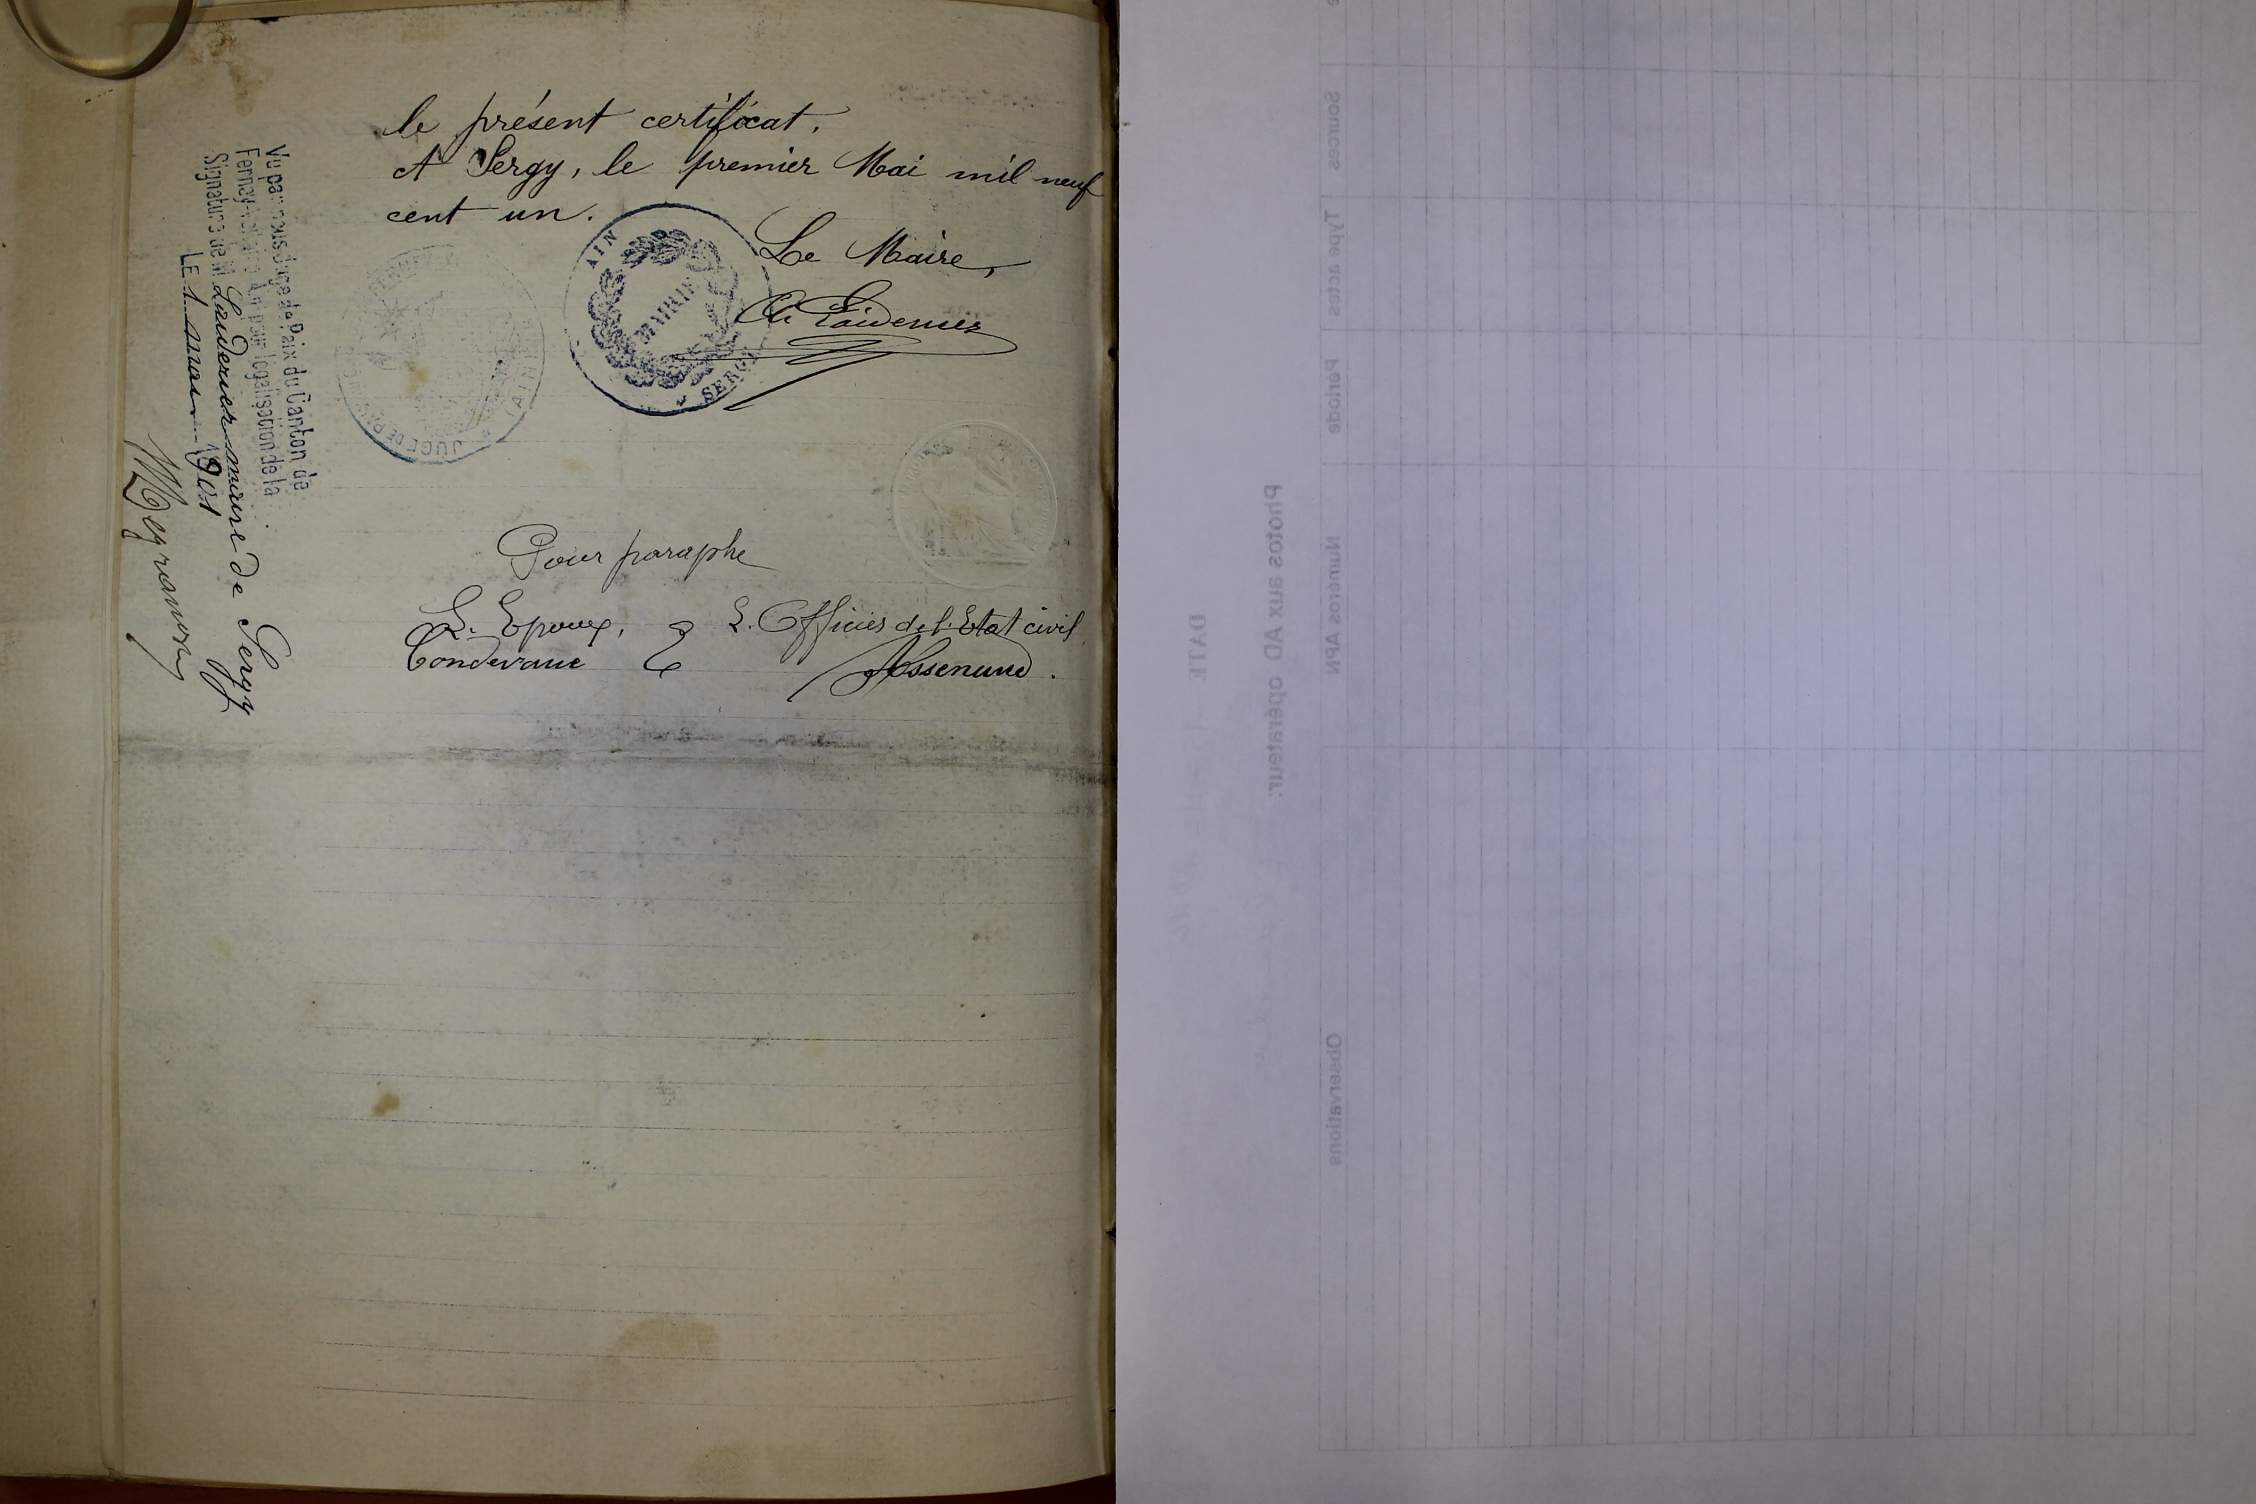 le présent certificat.
A Sergy, le premier Mai mil neuf
cent un.
Le Maire,
AIN
MAIRIE
SERGY
JUGE DE
AIN
Vu par nous Juge de Paix du Canton de
Fernex pour légalisation de la
Signature de M. Laverrier maire de Sergy
LE 1 mai 1901
Pour paraphe
L. Epoux, L. Officier de l. Etat civil
Condevaux
DATE
Photos aux AD opérateur:
Sources
Type actes
Période
Numéros APN
Observations